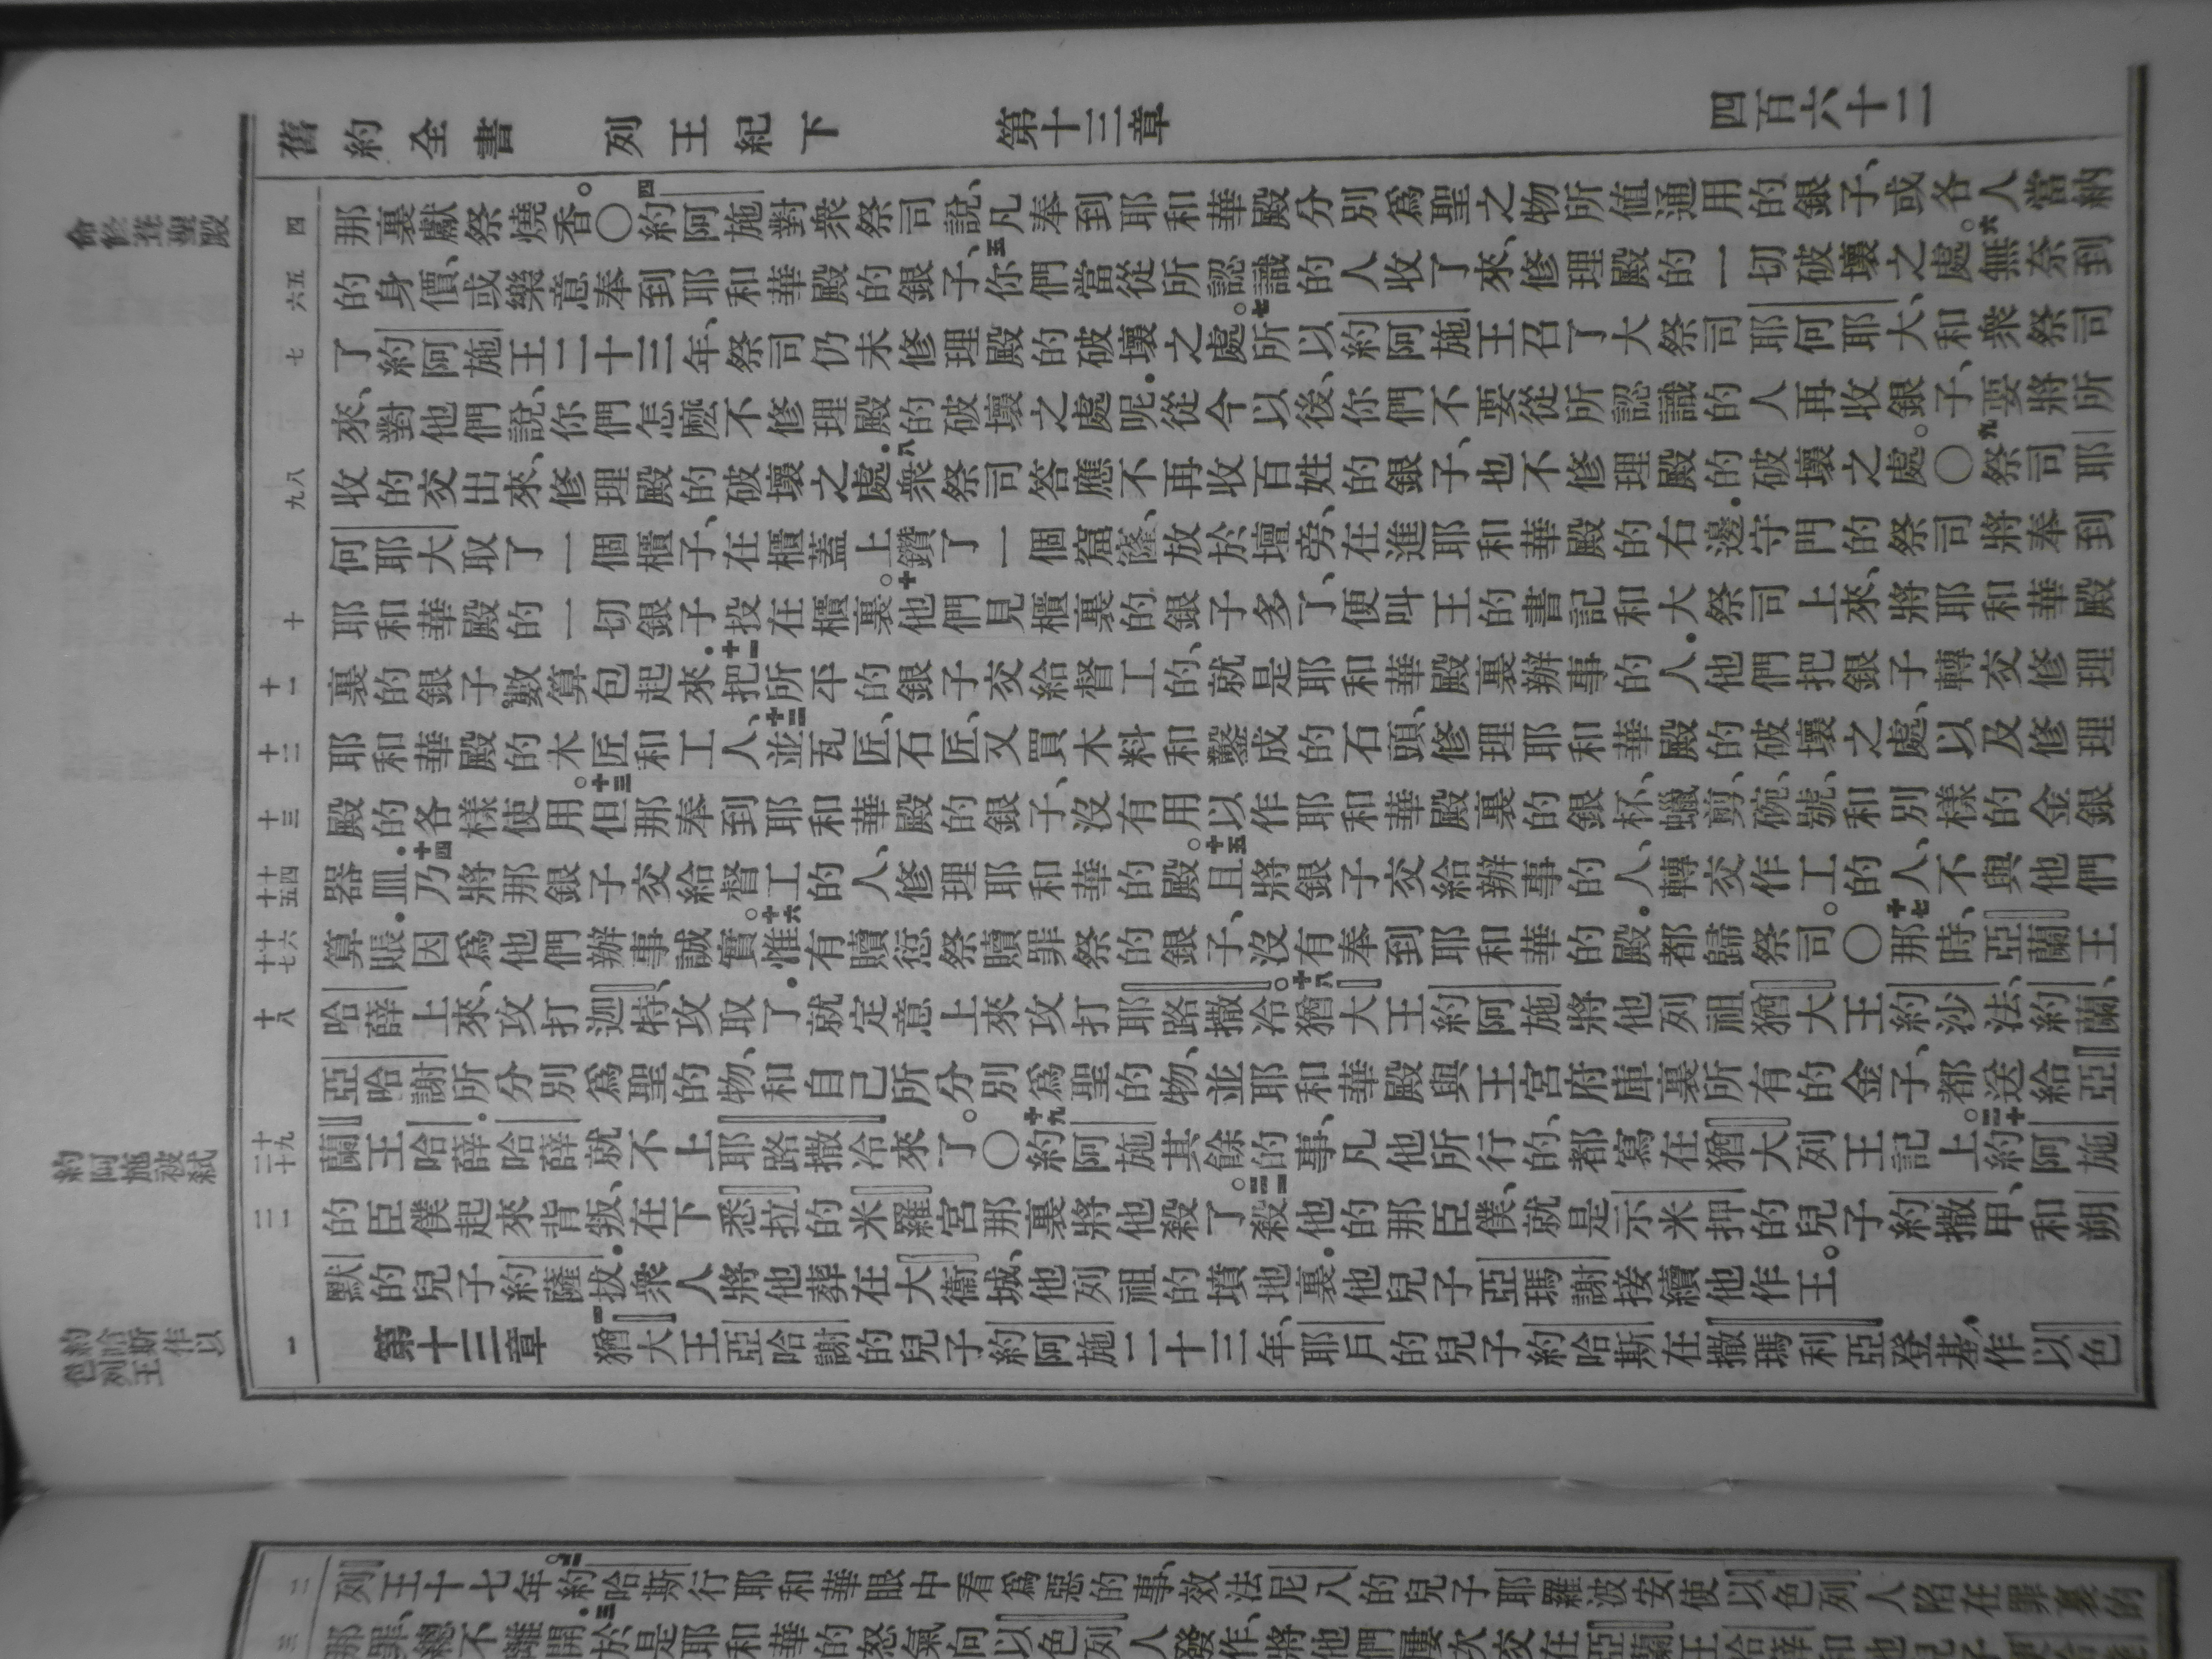 舊約全書 列王紀下 第十三章 四百六十二
命修葺聖殿
四
那裏獻祭燒香。〇四約阿施對衆祭司說、凡奉到耶和華殿分別爲聖之物所值通用的銀子、或各人當納
五六
的身價、或樂意奉到耶和華殿的銀子、五你們當從所認識的人收了來、修理殿的一切破壞之處。六無奈到
七
了約阿施王二十三年、祭司仍未修理殿的破壞之處。七所以約阿施王召了大祭司耶何耶大、和衆祭司
來、對他們說、你們怎麼不修理殿的破壞之處呢.從今以後、你們不要從所認識的人再收銀子、要將所
八九
收的交出來、修理殿的破壞之處.八衆祭司答應不再收百姓的銀子、也不修理殿的破壞之處。〇九祭司耶
何耶大取了一個櫃子、在櫃蓋上鑽了一個窟窿、放於壇旁、在進耶和華殿的右邊.守門的祭司將奉到
十
耶和華殿的一切銀子投在櫃裏。十他們見櫃裏的銀子多了、便叫王的書記和大祭司上來、將耶和華殿
十一
裏的銀子數算包起來.十一把所平的銀子交給督工的、就是耶和華殿裏辦事的人.他們把銀子轉交修理
十二
耶和華殿的木匠和工人、十二並瓦匠、石匠、又買木料和鑿成的石頭、修理耶和華殿的破壞之處、以及修理
十三
殿的各樣使用。十三但那奉到耶和華殿的銀子、沒有用以作耶和華殿裏的銀杯、蠟剪、碗、號、和別樣的金銀
十四十五
器皿.十四乃將那銀子交給督工的人、修理耶和華的殿。十五且將銀子交給辦事的人、轉交作工的人、不與他們
十六十七
算賬.因爲他們辦事誠實。十六惟有贖愆祭贖罪祭的銀子、沒有奉到耶和華的殿.都歸祭司。〇十七那時、亞蘭王
十八
哈薛上來、攻打迦特、攻取了.就定意上來攻打耶路撒冷。十八猶大王約阿施將他列祖猶大王約沙法、約蘭、
亞哈謝所分別爲聖的物、和自己所分別爲聖的物、並耶和華殿與王宮府庫裏所有的金子、都送給亞
十九二十
約阿施被弑
蘭王哈薛.哈薛就不上耶路撒冷來了。〇十九約阿施其餘的事、凡他所行的、都寫在猶大列王記上。二十約阿施
二一
的臣僕起來背叛、在下悉拉的米羅宮那裏將他殺了。二一殺他的那臣僕、就是示米押的兒子約撒甲、和朔
默的兒子約薩拔.衆人將他葬在大衞城、他列祖的墳地裏.他兒子亞瑪謝接續他作王。
約哈斯作以色列王
一
第十三章 一猶大王亞哈謝的兒子約阿施二十三年、耶戶的兒子約哈斯在撒瑪利亞登基、作以色
二
列王十七年。二約哈斯行耶和華眼中看爲惡的事、效法尼八的兒子耶羅波安使以色列人陷在罪裏的
三
那罪、總不離開.三於是耶和華的怒氣向以色列人發作、將他們屢次交在亞蘭王哈薛